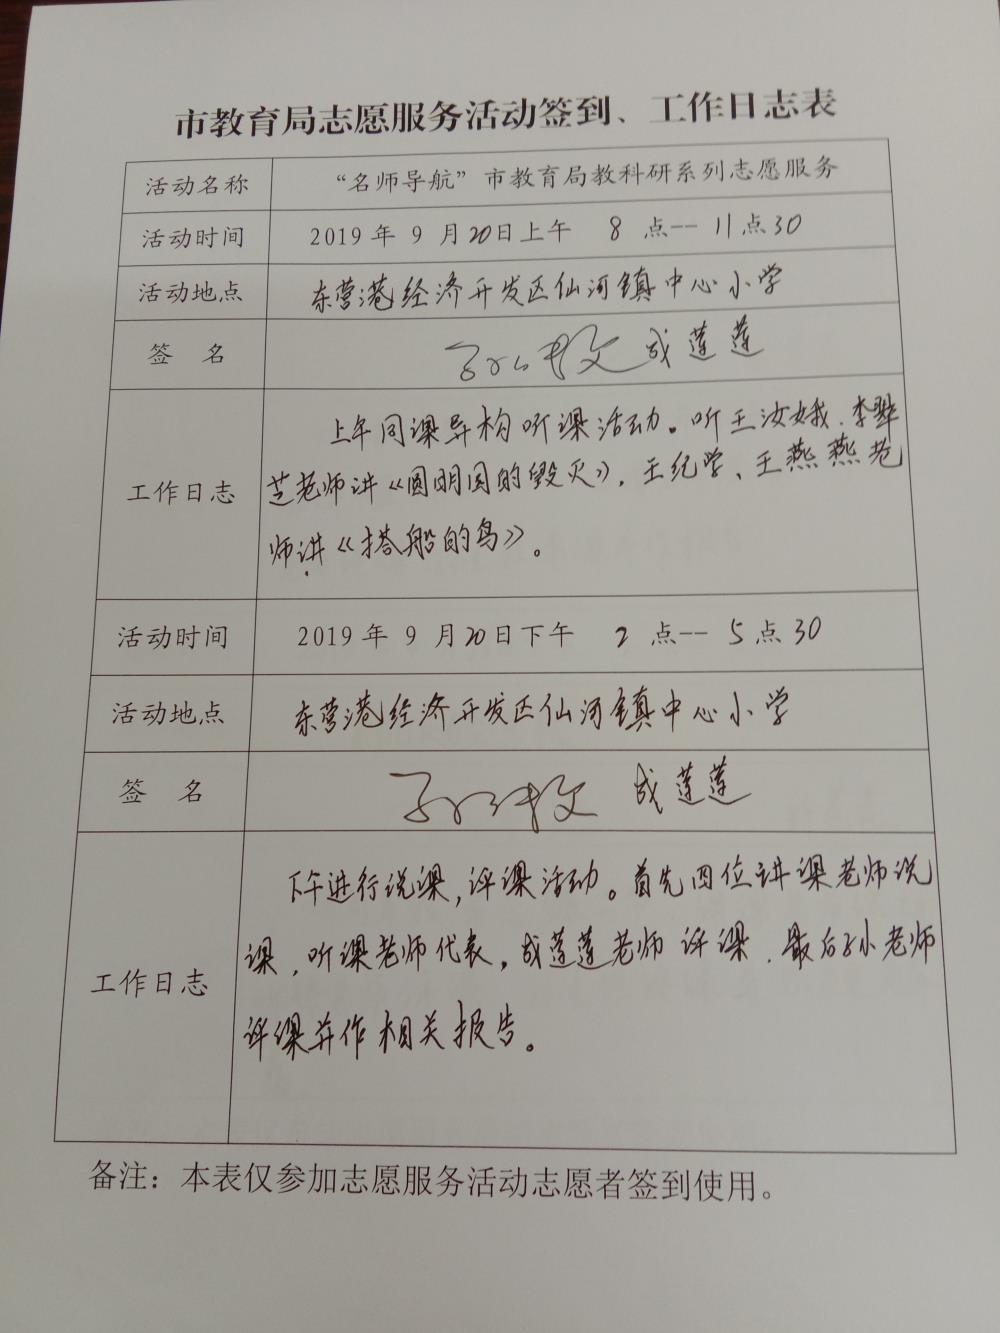 市教育局志愿服务活动签到、工作日志表
活动名称 “名师导航”市教育局教科研系列志愿服务
活动时间 2019年 9 月20日上午 8 点-- 11点30
活动地点 东营港经济开发区仙河镇中心小学
签 名 成莲莲
上午同课异构听课活动。听王汝娥、李
工作日志 芝老师讲《圆明园的毁灭》，王纪学、王燕燕老
师讲《搭船的鸟》。
活动时间 2019年 9 月20日下午 2 点-- 5点30
活动地点 东营港经济开发区仙河镇中心小学
签 名 成莲莲
下午进行说课，评课活动。首先四位讲课老师说
课，听课老师代表，成莲莲老师 评课，最后孙老师
工作日志
评课并作相关报告。
备注：本表仅参加志愿服务活动志愿者签到使用。